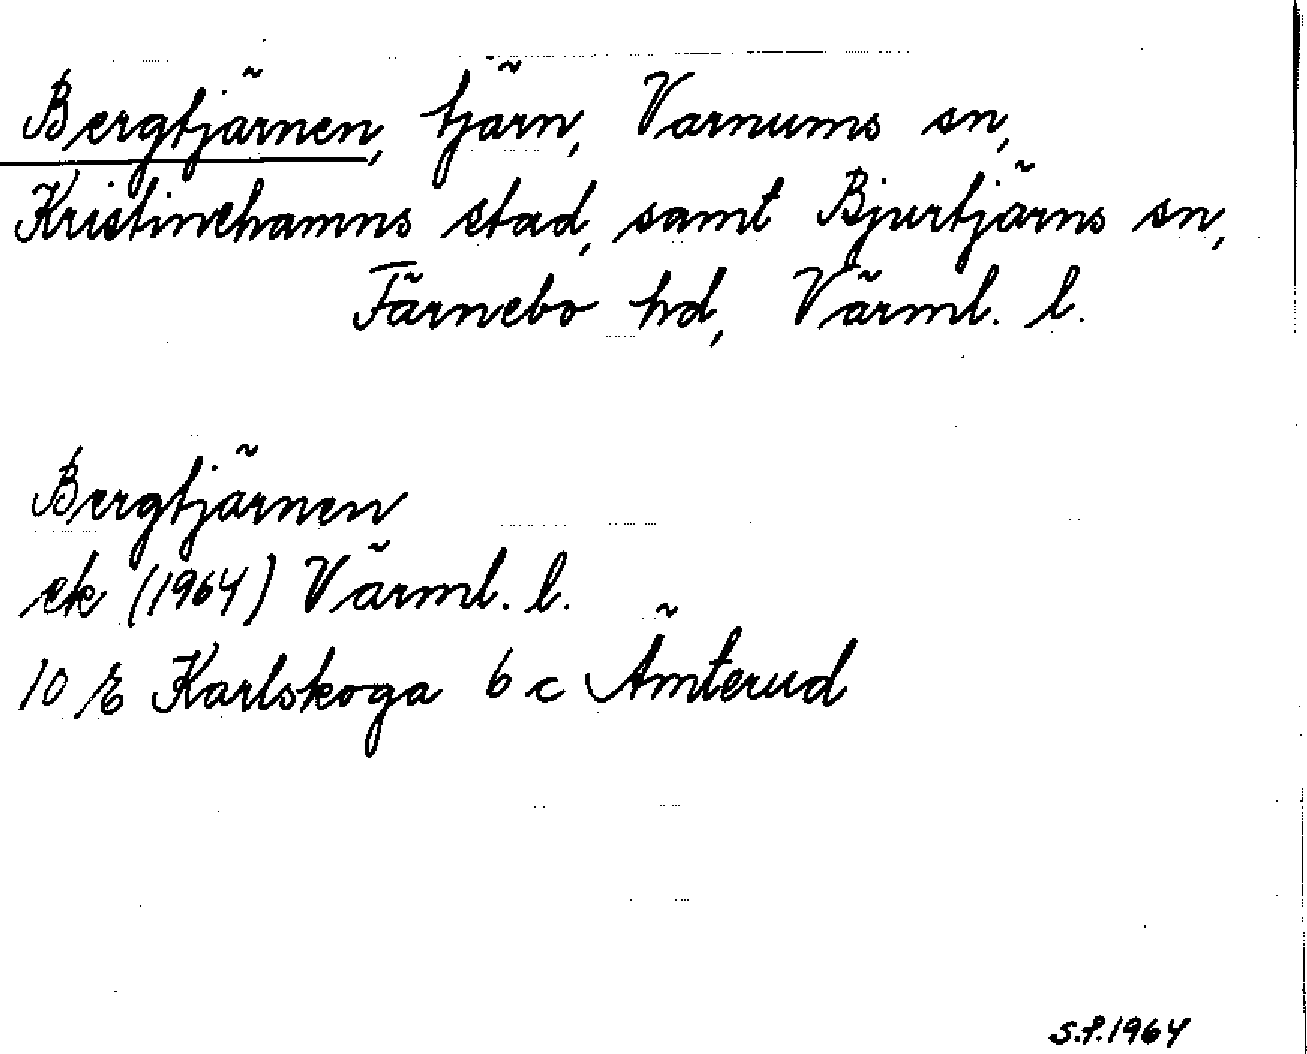 Bergtjärnen, tjärn, Varnums sn,
Kristinehamns stad, samt Bjurtjärns sn,
Färnebo hd, Värml. l.
Bergtjärnen
ek (1964) Värml. l.
10 E Karlskoga 6 c Ämterud
S.F. 1964